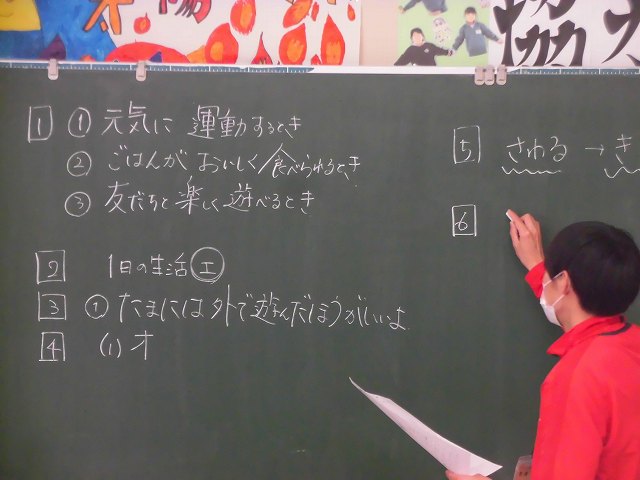 1 ① 元気に運動するとき
② ごはんがおいしく食べられるとき
③ 友だちと楽しく遊べるとき
2 1日の生活 エ
3 ① たまには外で遊んだほうがいいよ
4 (1) オ
5 さわる → き
6
協